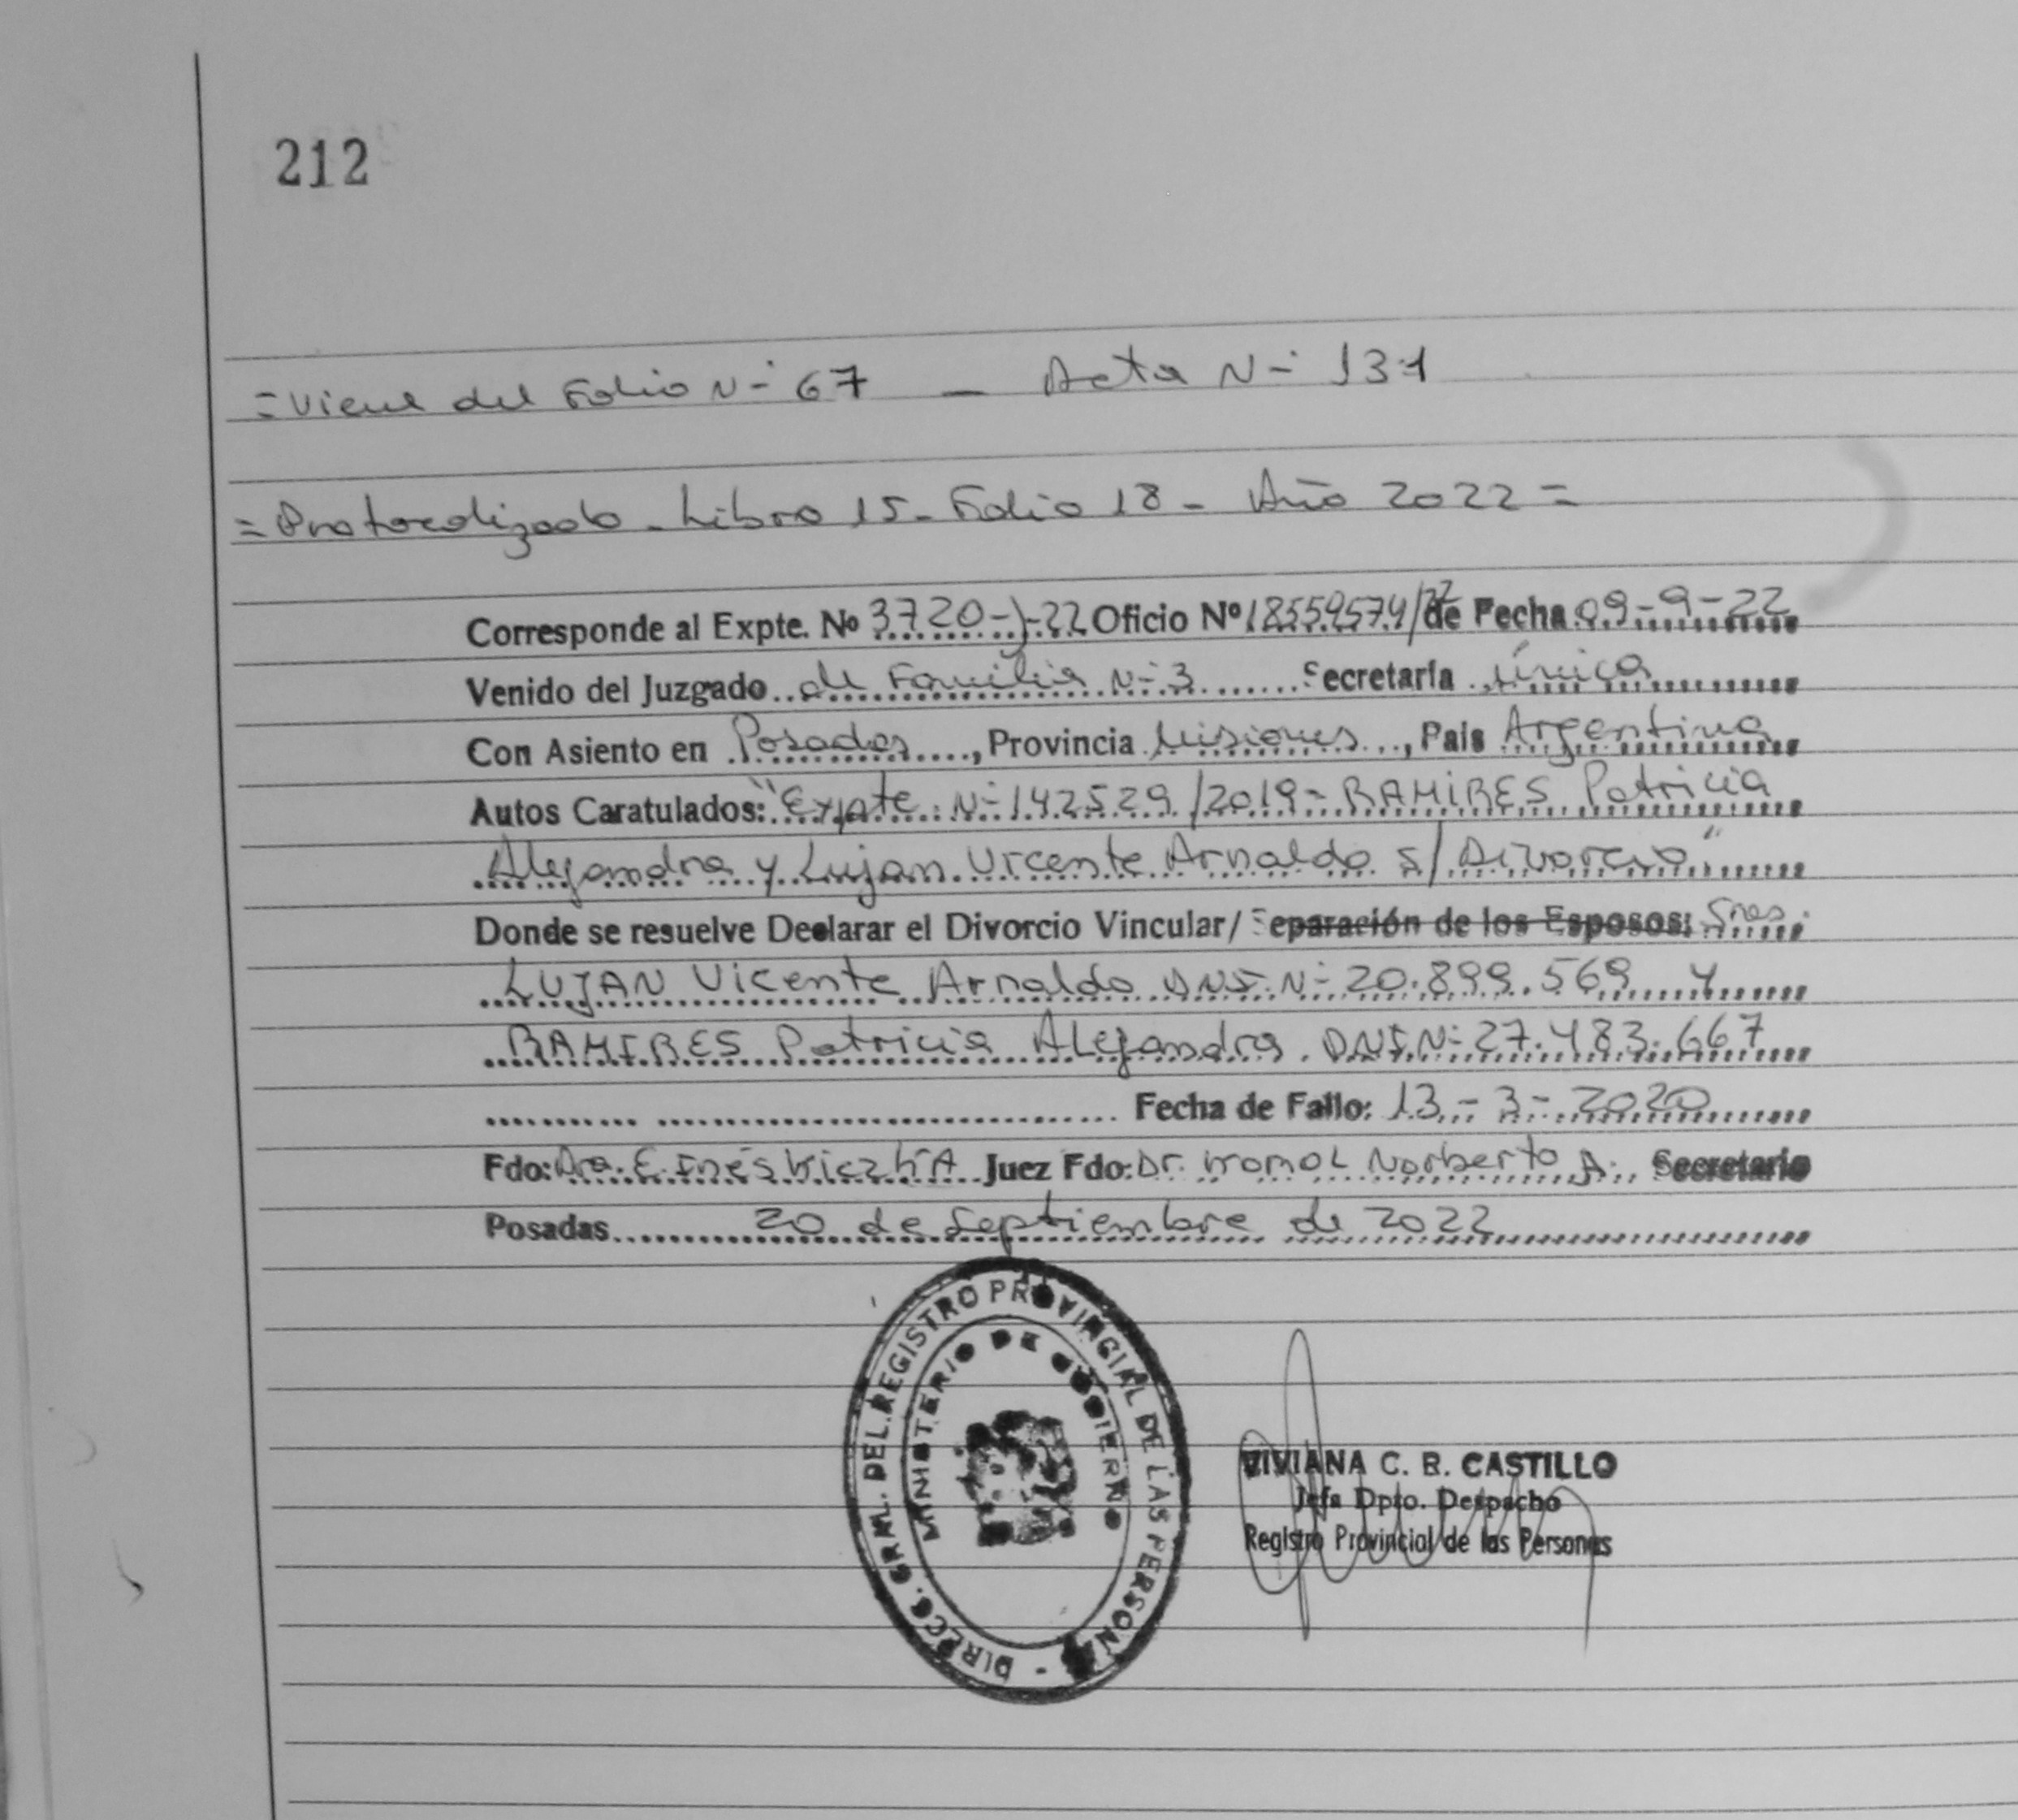 212
= Viene del Folio Nº 67 — Acta Nº 131
= Protocolizado - Libro 15 - Folio 18 - Año 2022 =
Corresponde al Expte. Nº 3720-J-22 Oficio Nº 18559574/22 de Fecha 09-9-22
Venido del Juzgado de Familia Nº 3 Secretaría única
Con Asiento en Posadas, Provincia Misiones, País Argentina
Autos Caratulados: "Expte. Nº 142529/2019- RAMIRES Patricia
Alejandra y Lujan Vicente Arnaldo s/ Divorcio"
Donde se resuelve Declarar el Divorcio Vincular/ Separación de los Esposos: Sres.
LUJAN Vicente Arnaldo DNI Nº 20.899.569 y
RAMIRES Patricia Alejandra. DNI Nº 27.483.667
Fecha de Fallo: 13-3-2020
Fdo: Dra. E. Inés Juez Fdo: Dr. Norberto A. Secretario
Posadas 20 de Septiembre de 2022
DIRECC. GRAL. DEL REGISTRO PROVINCIAL DE LAS PERSONAS -
MINISTERIO DE GOBIERNO
VIVIANA C. B. CASTILLO
Jefa Dpto. Despacho
Registro Provincial de las Personas